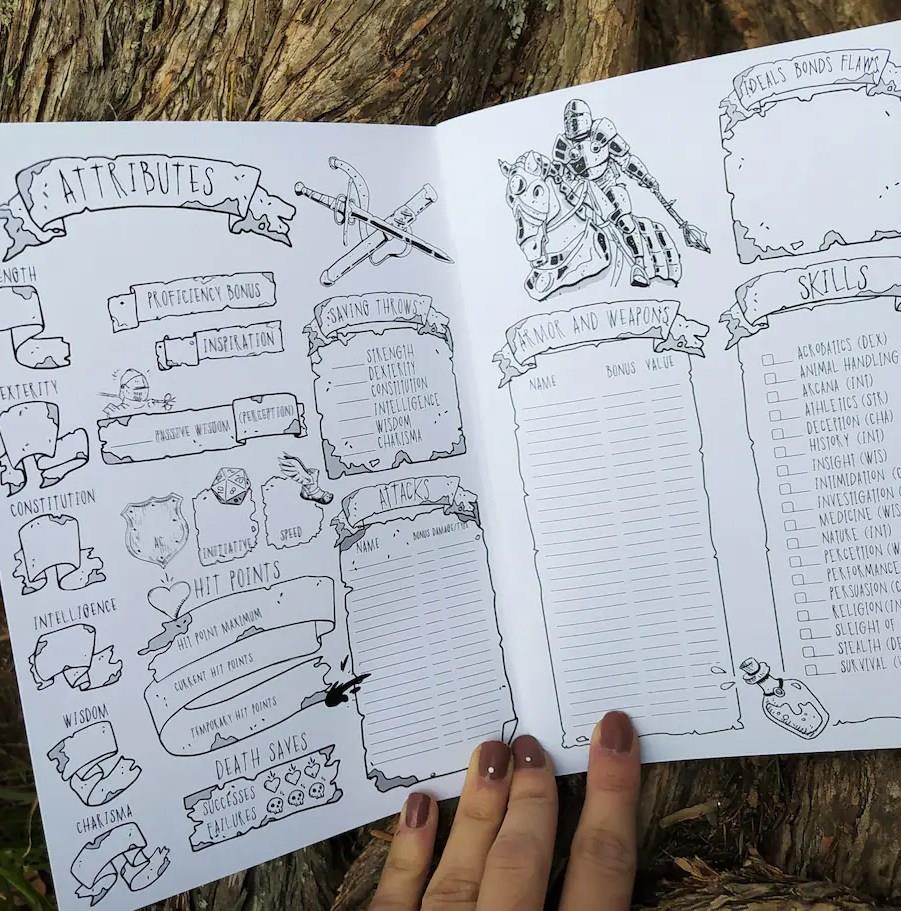 ATTRIBUTES
NGTH
PROFICIENCY BONUS
INSPIRATION
EXTERITY
PASSIVE WISDOM (PERCEPTION)
CONSTITUTION
AC
INITIATIVE
SPEED
HIT POINTS
HIT POINT MAXIMUM
CURRENT HIT POINTS
TEMPORARY HIT POINTS
INTELLIGENCE
WISDOM
CHARISMA
DEATH SAVES
SUCCESSES
FAILURES
SAVING THROWS
STRENGTH
DEXTERITY
CONSTITUTION
INTELLIGENCE
WISDOM
CHARISMA
ATTACKS
NAME BONUS DAMAGE/TYPE
ARMOR AND WEAPONS
NAME BONUS VALUE
IDEALS BONDS FLAWS
SKILLS
ACROBATICS (DEX)
ANIMAL HANDLING
ARCANA (INT)
ATHLETICS (STR)
DECEPTION (CHA)
HISTORY (INT)
INSIGHT (WIS)
INTIMIDATION (
INVESTIGATION (
MEDICINE (WIS
NATURE (INT)
PERCEPTION (W
PERFORMANCE
PERSUASION (C
RELIGION (IN
SLEIGHT OF
STEALTH (DE
SURVIVAL (